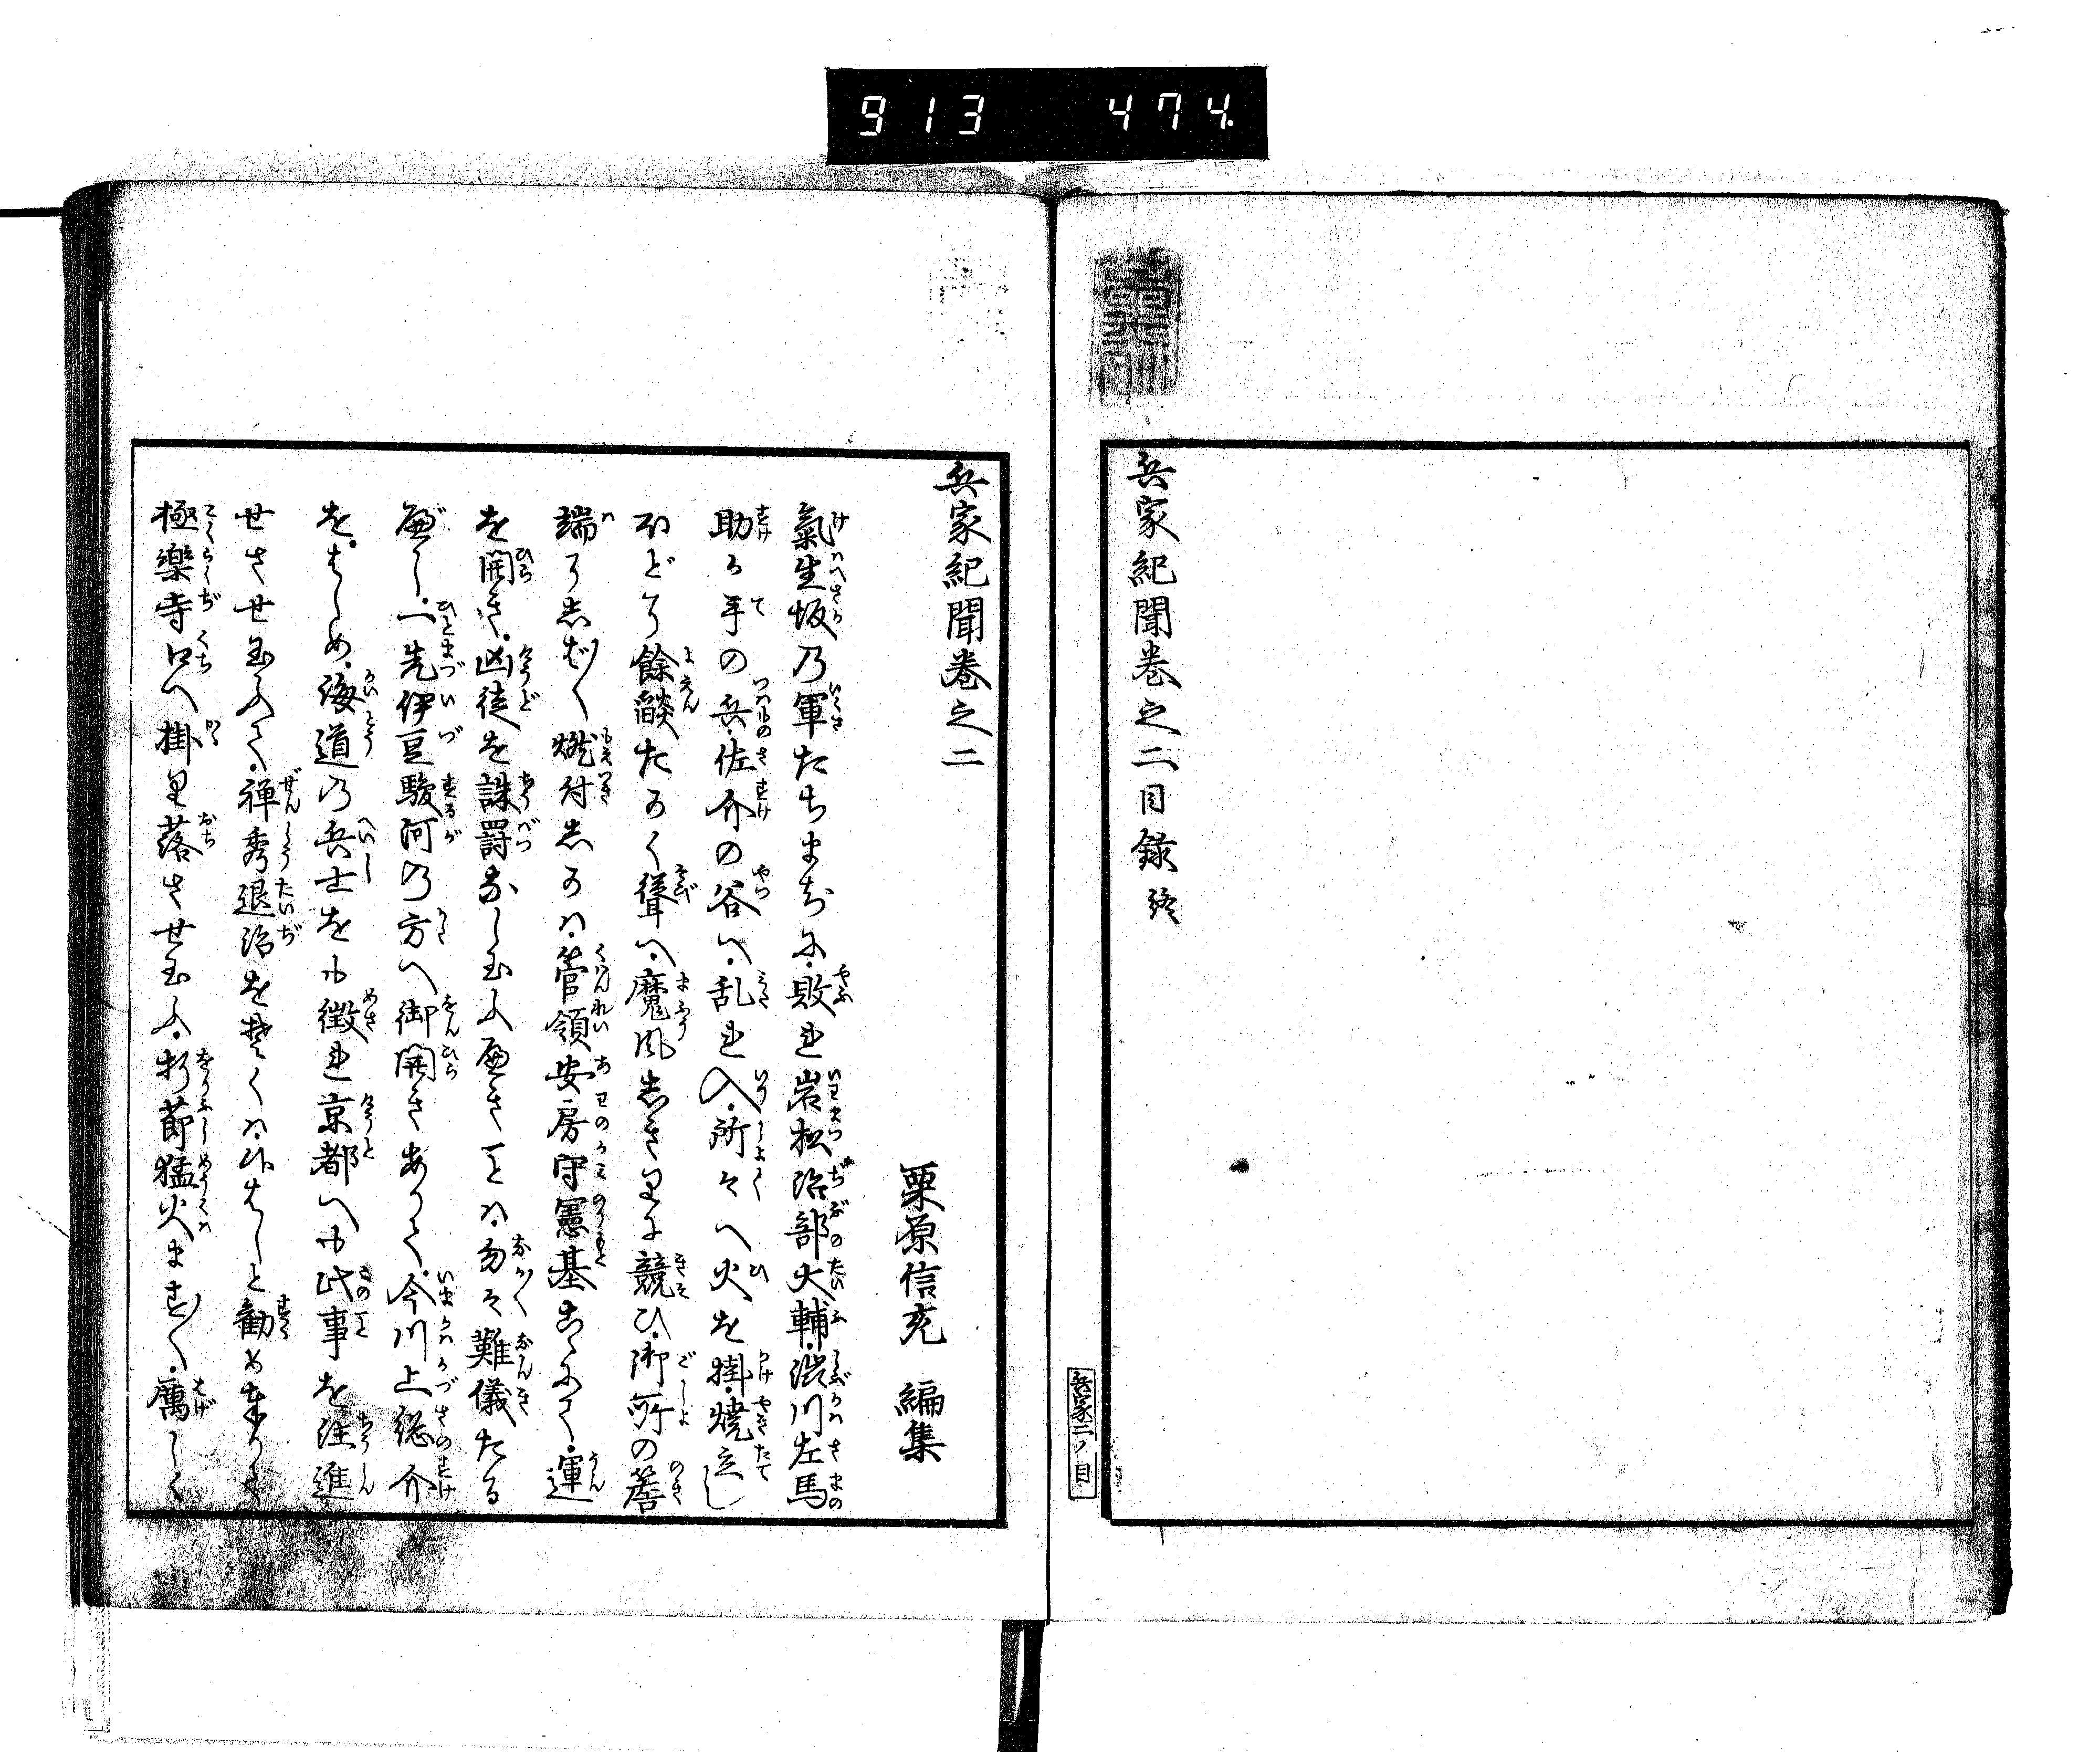 913 474
兵家紀聞巻之二目録終
兵家二ノ目
兵家紀聞巻之二
栗原信充 編集
氣生坂乃軍たちまちに敗れ岩松治部大輔渋川左馬
助か手の兵佐介の谷へ乱れ入所々へ火を掛焼立し
ほどに餘燄たかく聳へ魔風しきりに競ひ御所の簷
端にしばしば燃付しかハ管領安房守憲基
を開き凶徒を誅罰なし玉ふべきことハ勿々難儀たる
べし一先伊豆駿河の方へ御開きあつて今川上総介
をはしめ海道乃兵士をも徴れ京都へも此事を注進
せさせ玉ふて禅秀退治を
極楽寺口へ掛り落させ玉ふ折節猛火ますます厲しく